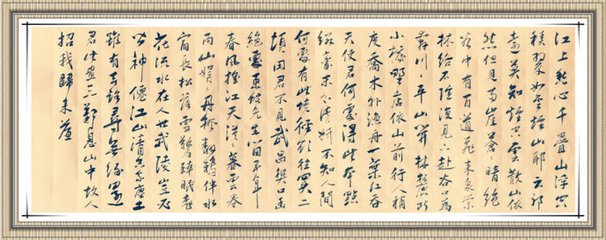 江上愁心千疊山浮空
積翠如雲煙山耶雲耶
遠莫知煙空雲散山依
然但見兩崖蒼々暗絕
谷中有百道飛來泉縈
林絡石隱復見下赴谷口為
奔川川平山開林麓斷
小橋野店依山前行人稍
度喬木外漁舟一葉江吞
天使君何處得此本點
綴毫末分清妍不知人間
何處有此境徑欲往買二
頃田君不見武昌樊口幽
絕處東坡先生留五年
春風搖江天漠々暮雲卷
雨山娟々丹楓翻鴉伴水
宿長松落雪驚醉眠桃
花流水在人世武陵豈必
皆神僊江山清空我塵土
雖有去路尋無緣還
君此畫三歎息山中故人
招我歸來篇